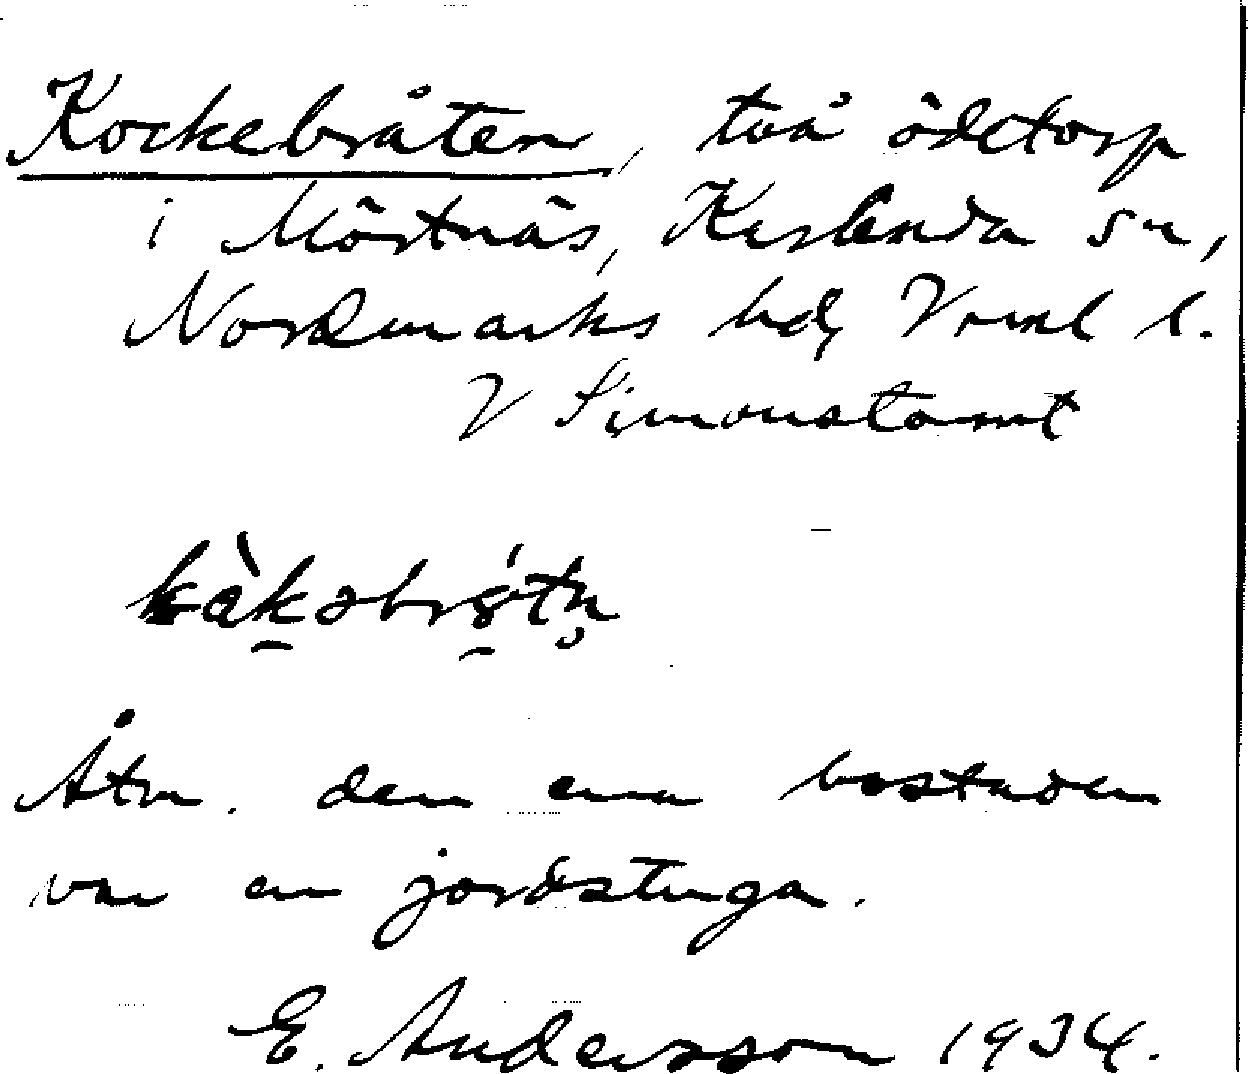 Kockebråten, två ödetorp
i Mörtnäs, Karlanda sn,
Nordmarks hd, Vrml l.
V Simonstomt
kàkəbrǫ́tn̥
Åtm. den ena bostaden
var en jordstuga.
E. Andersson 1934.